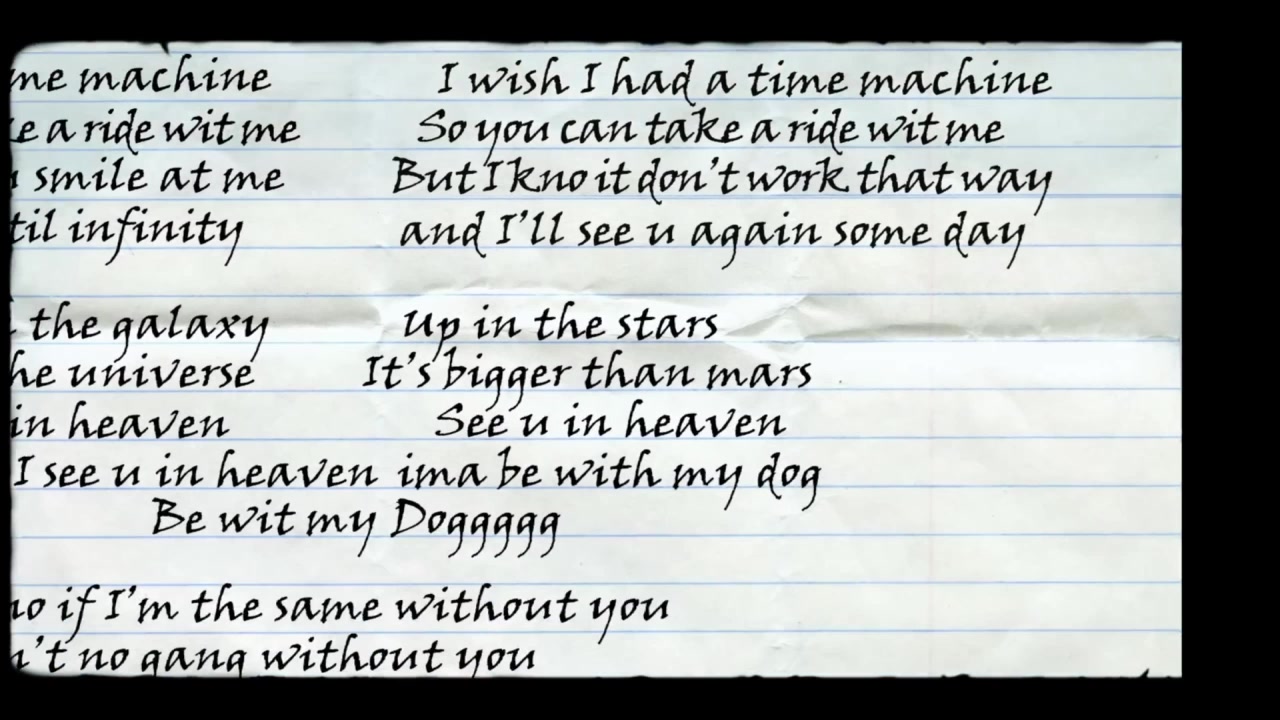 me machine I wish I had a time machine
a ride wit me So you can take a ride wit me
smile at me But I kno it don't work that way
til infinity and I'll see u again some day
the galaxy Up in the stars
universe It's bigger than mars
in heaven See u in heaven
I see u in heaven ima be with my dog
Be wit my Doggggg
if I'm the same without you
no gang without you